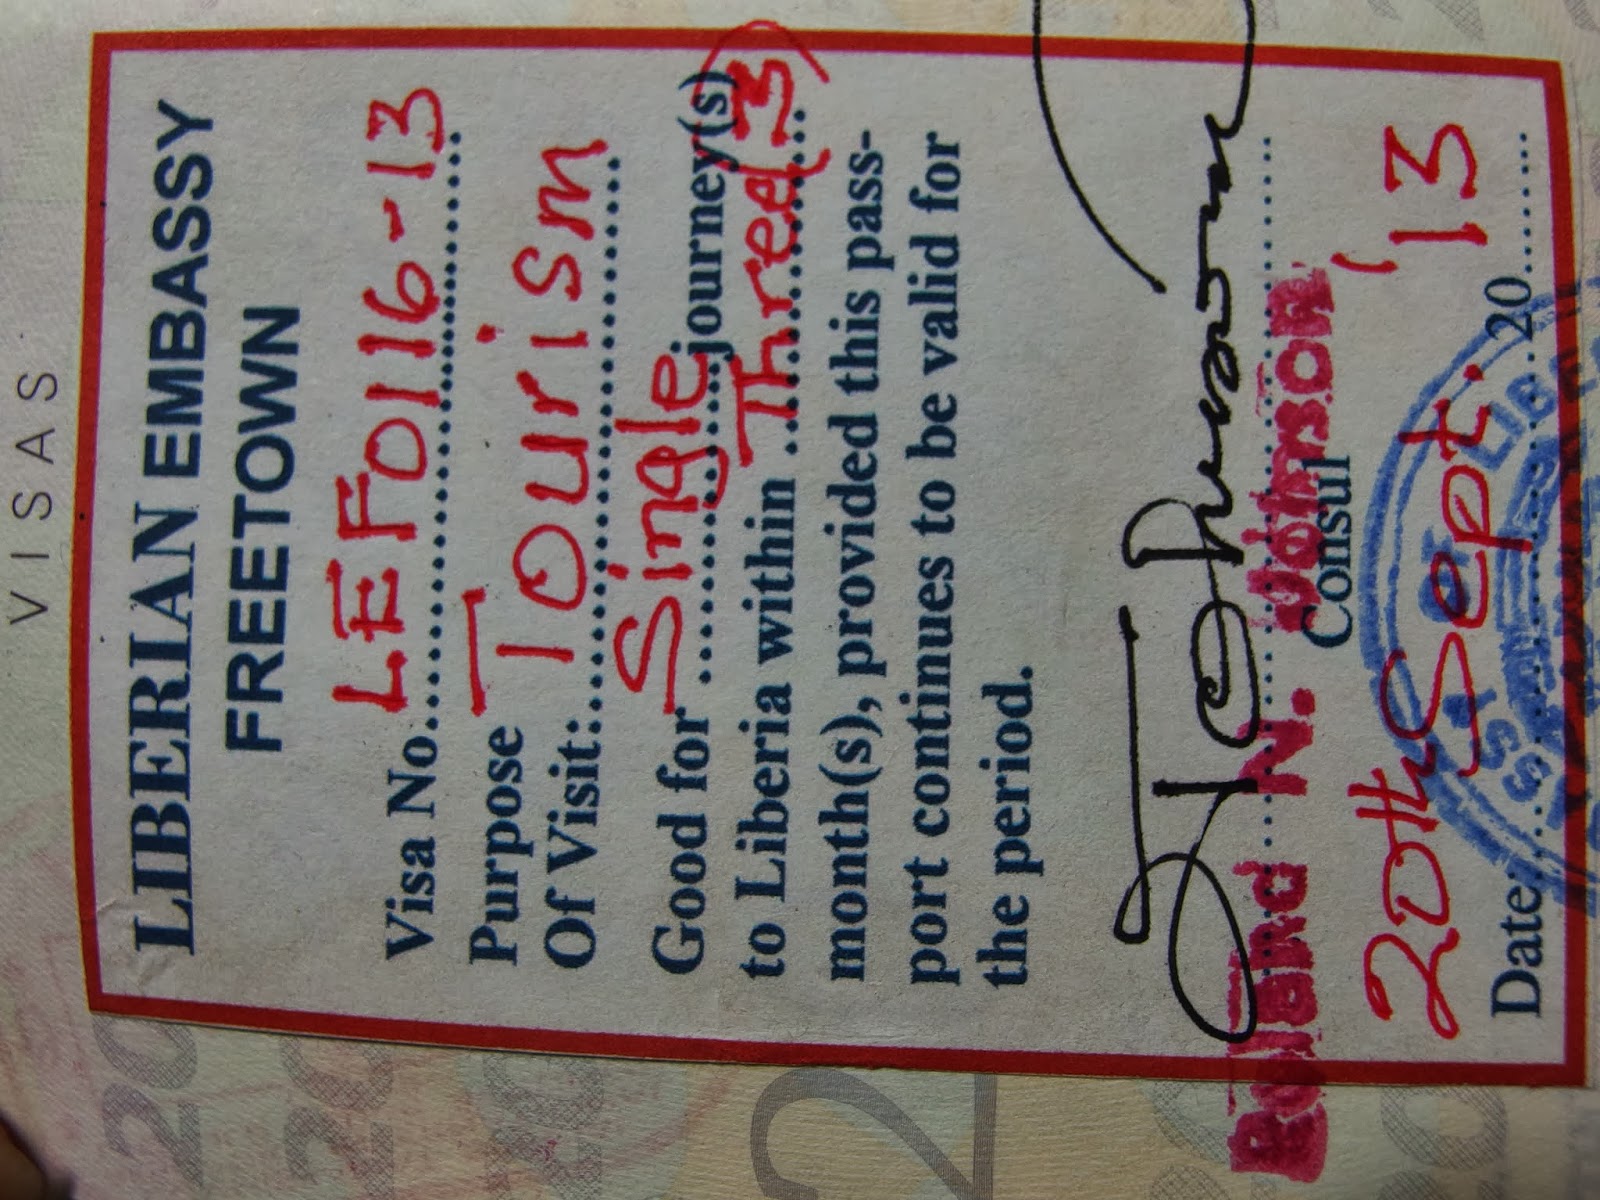 VISAS
LIBERIAN EMBASSY
FREETOWN
Visa No. LEF0116-13
Purpose
Of Visit: Tourism
Good for Single journey(s)
to Liberia within Three (3)
month(s), provided this pass-
port continues to be valid for
the period.
N. Johnson
Consul
Date: 20th Sept. 20 '13